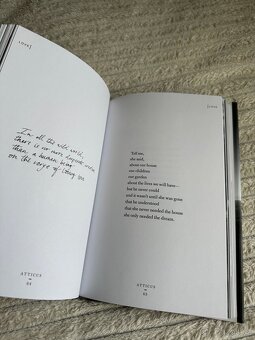 In all the wild world,
there is no more desperate creature
than a human being
on the verge of losing love
ATTICUS
64
LOVE
Tell me,
she said,
about our house
our children
our garden
about the lives we will have—
but he never could
and it wasn't until she was gone
that he understood
that she never needed the house
she only needed the dream.
ATTICUS
65